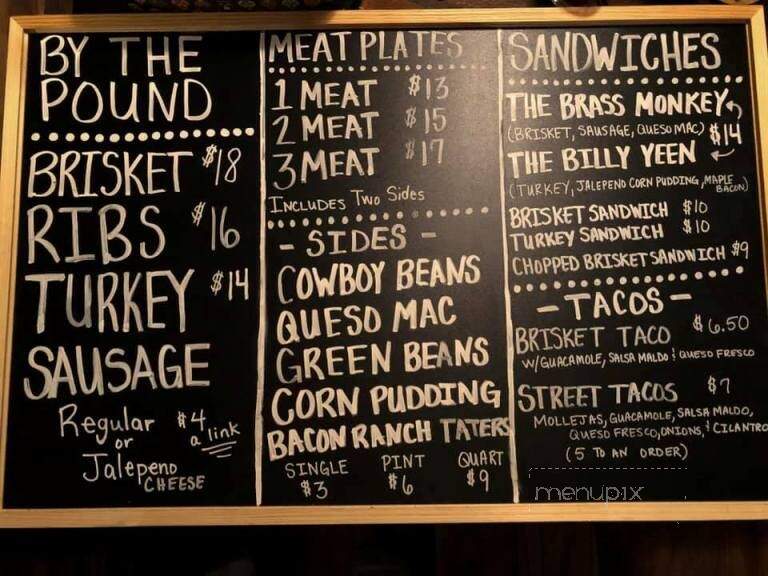 BY THE
POUND
BRISKET $18
RIBS $16
TURKEY $14
SAUSAGE
Regular $4
or a link
Jalepeno
CHEESE
MEAT PLATES
1 MEAT $13
2 MEAT $15
3 MEAT $17
INCLUDES TWO SIDES
- SIDES -
COWBOY BEANS
QUESO MAC
GREEN BEANS
CORN PUDDING
BACON RANCH TATERS
SINGLE PINT QUART
$3 $6 $9
SANDWICHES
THE BRASS MONKEY
(BRISKET, SAUSAGE, QUESO MAC) $14
THE BILLY YEEN
(TURKEY, JALEPENO CORN PUDDING, MAPLE
BACON)
BRISKET SANDWICH $10
TURKEY SANDWICH $10
CHOPPED BRISKET SANDWICH $9
- TACOS -
BRISKET TACO $6.50
W/GUACAMOLE, SALSA MALDO & QUESO FRESCO
STREET TACOS $7
MOLLEJAS, GUACAMOLE, SALSA MALDO,
QUESO FRESCO, ONIONS, & CILANTRO
(5 TO AN ORDER)
menupix